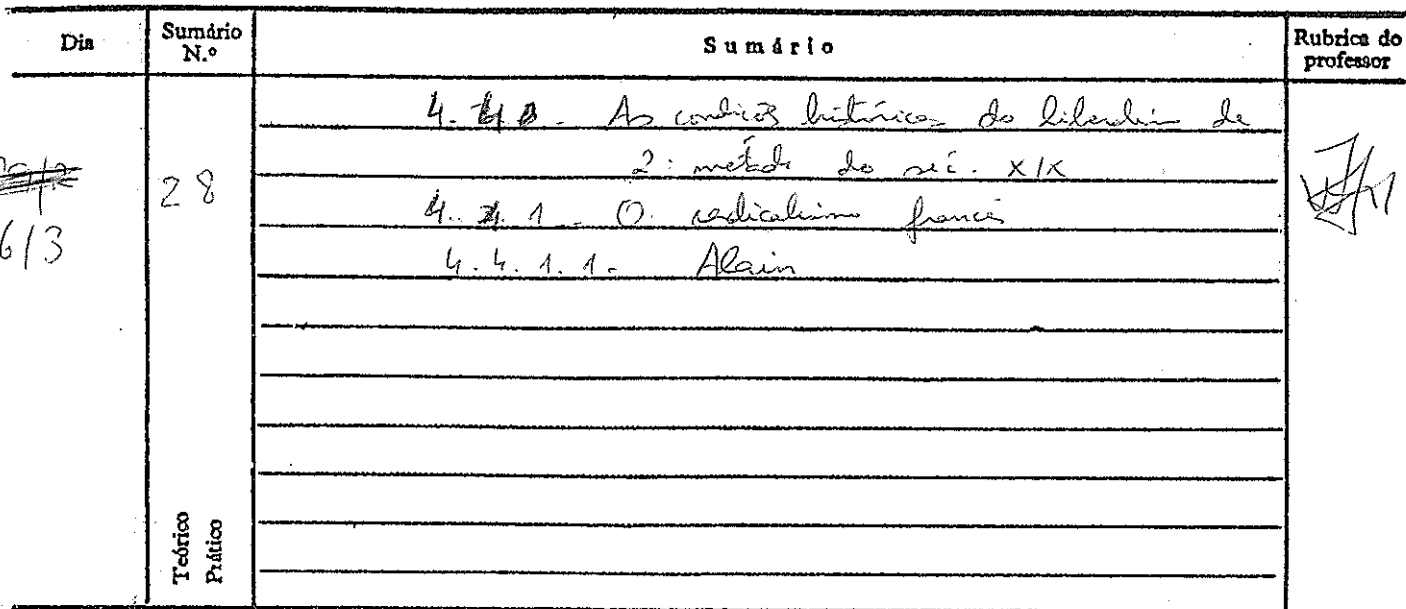 Dia
Sumário N.º
Sumário
Rubrica do professor
6/3
28
4.4.0 - As condições históricas do liberalismo de
2ª metade do séc. XIX
4.4.1 - O radicalismo francês
4.4.1.1 - Alain
Teórico
Prático